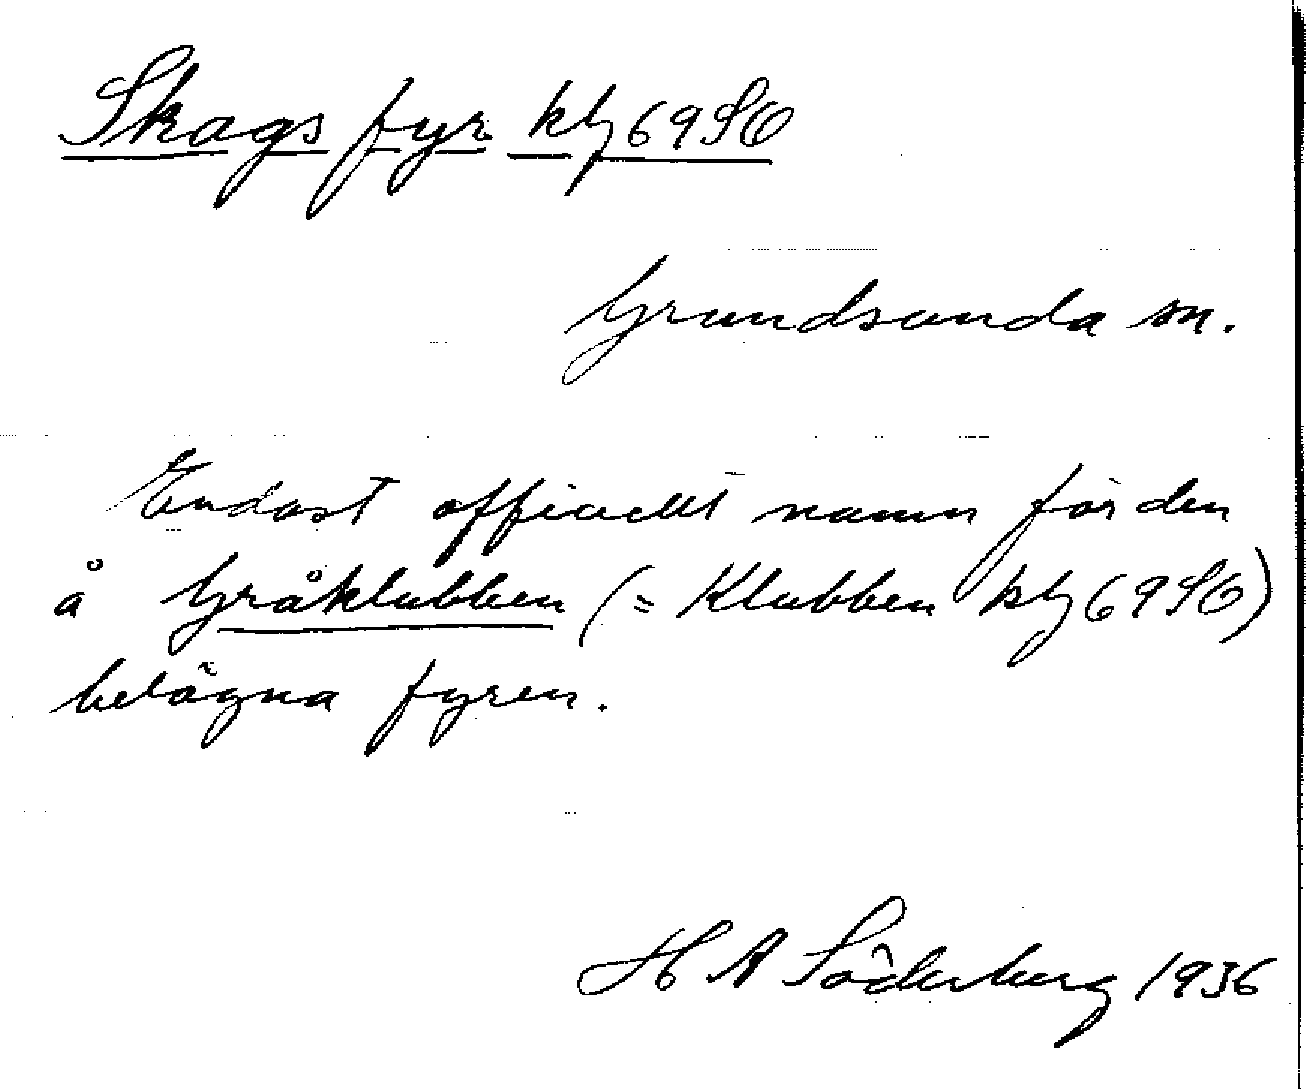 Skags fyr kbl 69 SO
Grundsunda sn.
Endast officiellt namn för den
å Gråklubben (= Klubben kbl 69 SO)
belägna fyren.
H A Söderberg 1936